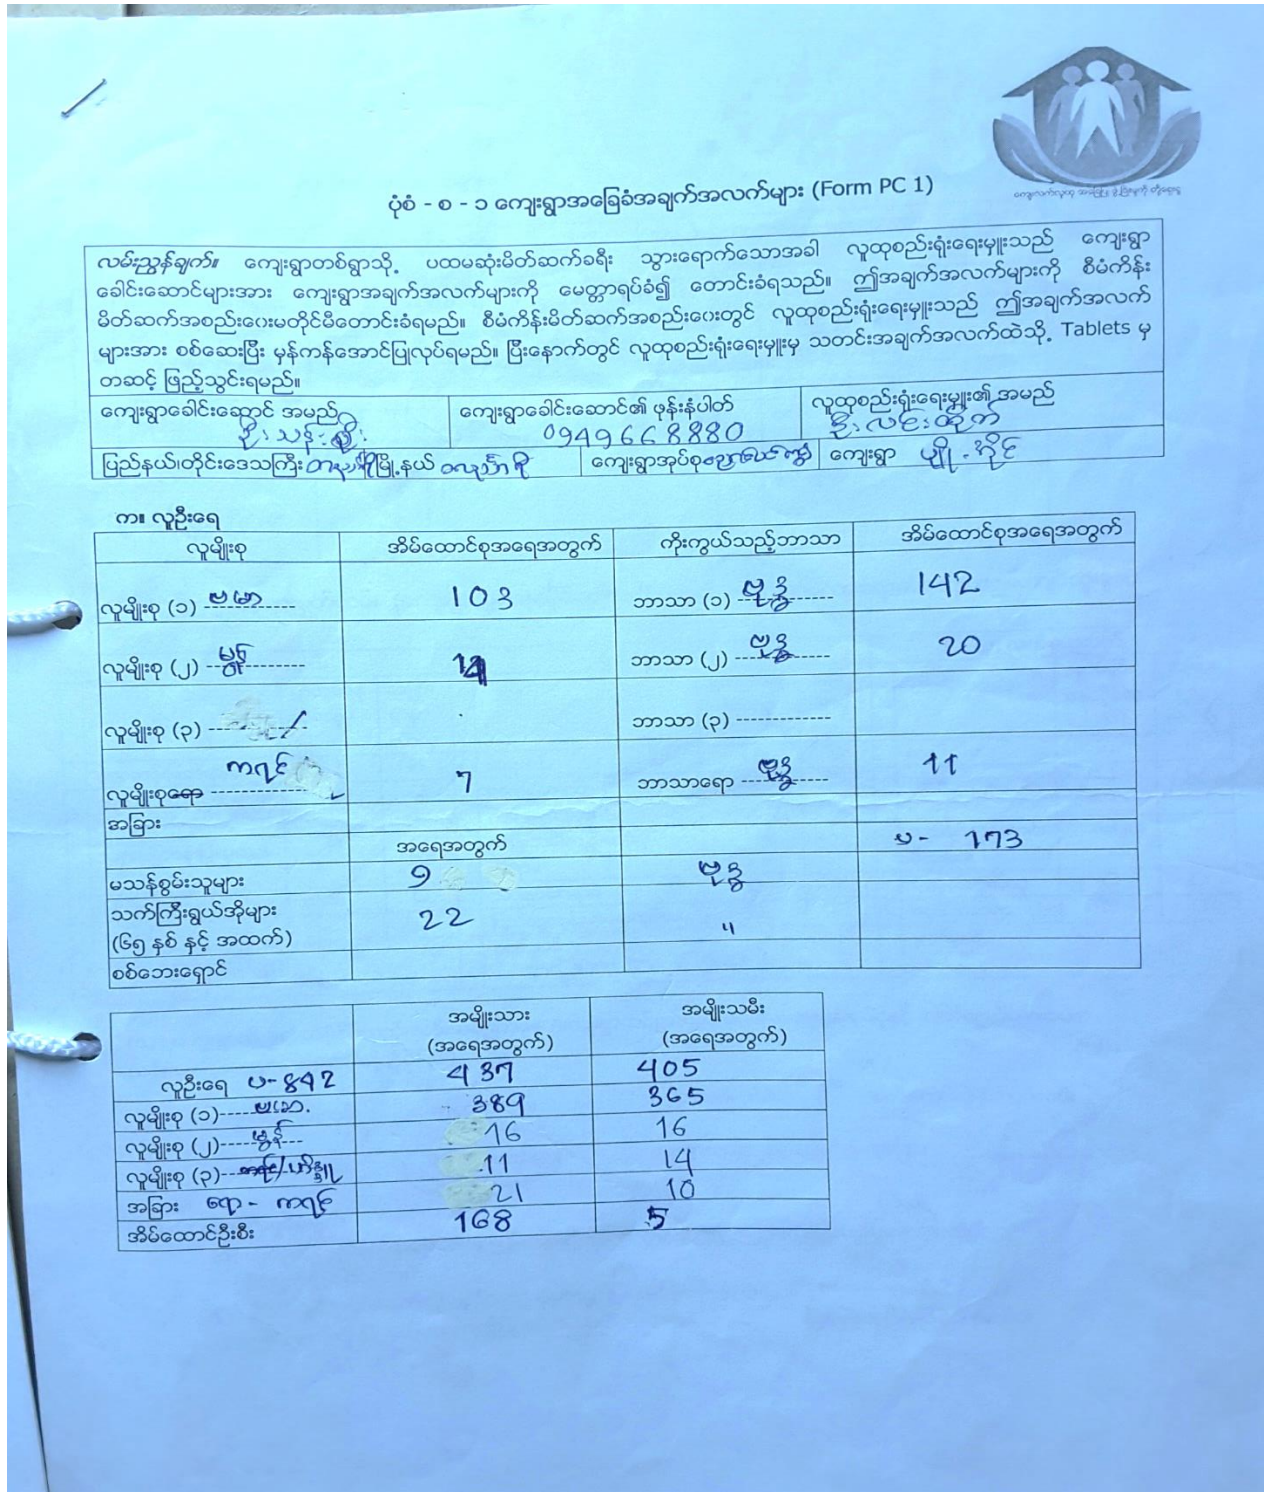 ကျေးလက်လူထု အခြေပြု ဖွံ့ဖြိုးမှုကို တို့ရှေးရှု
ပုံစံ - စ - ၁ ကျေးရွာအခြေခံအချက်အလက်များ (Form PC 1)
လမ်းညွှန်ချက်။ ကျေးရွာတစ်ရွာသို့ ပထမဆုံးမိတ်ဆက်ခရီး သွားရောက်သောအခါ လူထုစည်းရုံးရေးမှူးသည် ကျေးရွာ
ခေါင်းဆောင်များအား ကျေးရွာအချက်အလက်များကို မေတ္တာရပ်ခံ၍ တောင်းခံရသည်။ ဤအချက်အလက်များကို စီမံကိန်း
မိတ်ဆက်အစည်းဝေးမတိုင်မီတောင်းခံရမည်။ စီမံကိန်းမိတ်ဆက်အစည်းဝေးတွင် လူထုစည်းရုံးရေးမှူးသည် ဤအချက်အလက်
များအား စစ်ဆေးပြီး မှန်ကန်အောင်ပြုလုပ်ရမည်။ ပြီးနောက်တွင် လူထုစည်းရုံးရေးမှူးမှ သတင်းအချက်အလက်ထဲသို့ Tablets မှ
တဆင့် ဖြည့်သွင်းရမည်။
ကျေးရွာခေါင်းဆောင် အမည် ကျေးရွာခေါင်းဆောင်၏ ဖုန်းနံပါတ် လူထုစည်းရုံးရေးမှူး၏ အမည်
ဦးသန်း 0949668880 ဦးလင်းထိုက်
ပြည်နယ်/တိုင်းဒေသကြီး မြို့နယ် ကျေးရွာအုပ်စု ကျေးရွာ
က။ လူဦးရေ
လူမျိုးစု အိမ်ထောင်စုအရေအတွက် ကိုးကွယ်သည့်ဘာသာ အိမ်ထောင်စုအရေအတွက်
လူမျိုးစု (၁) ဗမာ 103 ဘာသာ (၁) ဗုဒ္ဓ 142
လူမျိုးစု (၂) မွန် ဘာသာ (၂) ဗုဒ္ဓ 20
လူမျိုးစု (၃) ဘာသာ (၃)
လူမျိုးစုရော ကရင် 7 ဘာသာရော ဗုဒ္ဓ 11
အခြား
အရေအတွက် ပ- 173
မသန်စွမ်းသူများ 9 ဗုဒ္ဓ
သက်ကြီးရွယ်အိုများ 22 "
(၆၅ နှစ် နှင့် အထက်)
စစ်ဘေးရှောင်
အမျိုးသား အမျိုးသမီး
(အရေအတွက်) (အရေအတွက်)
လူဦးရေ ပ-842 437 405
လူမျိုးစု (၁) ဗမာ 389 365
လူမျိုးစု (၂) မွန် 16 16
လူမျိုးစု (၃) ဟိန္ဒူ 11 14
အခြား ရော - ကရင် 21 10
အိမ်ထောင်ဦးစီး 168 5